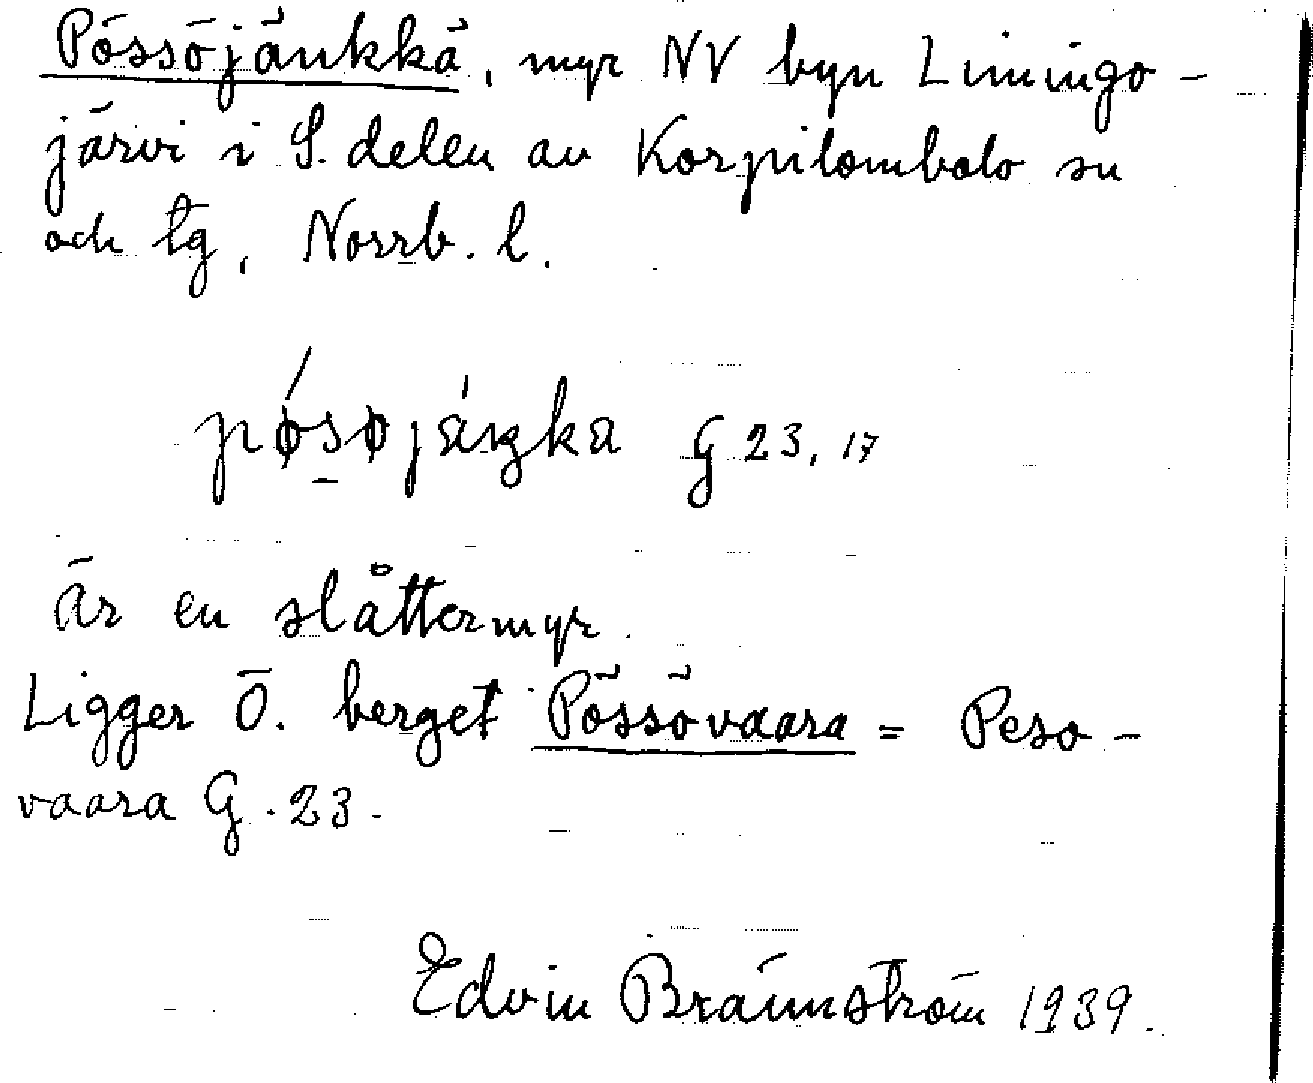 Pössöjänkkä, myr NV byn Limingo-
järvi i S. delen av Korpilombolo sn
och tg, Norrb. l.
G 23, 17
Är en slåttermyr.
Ligger Ö. berget Pössövaara = Peso-
vaara G. 23.
Edvin Brännström 1939.